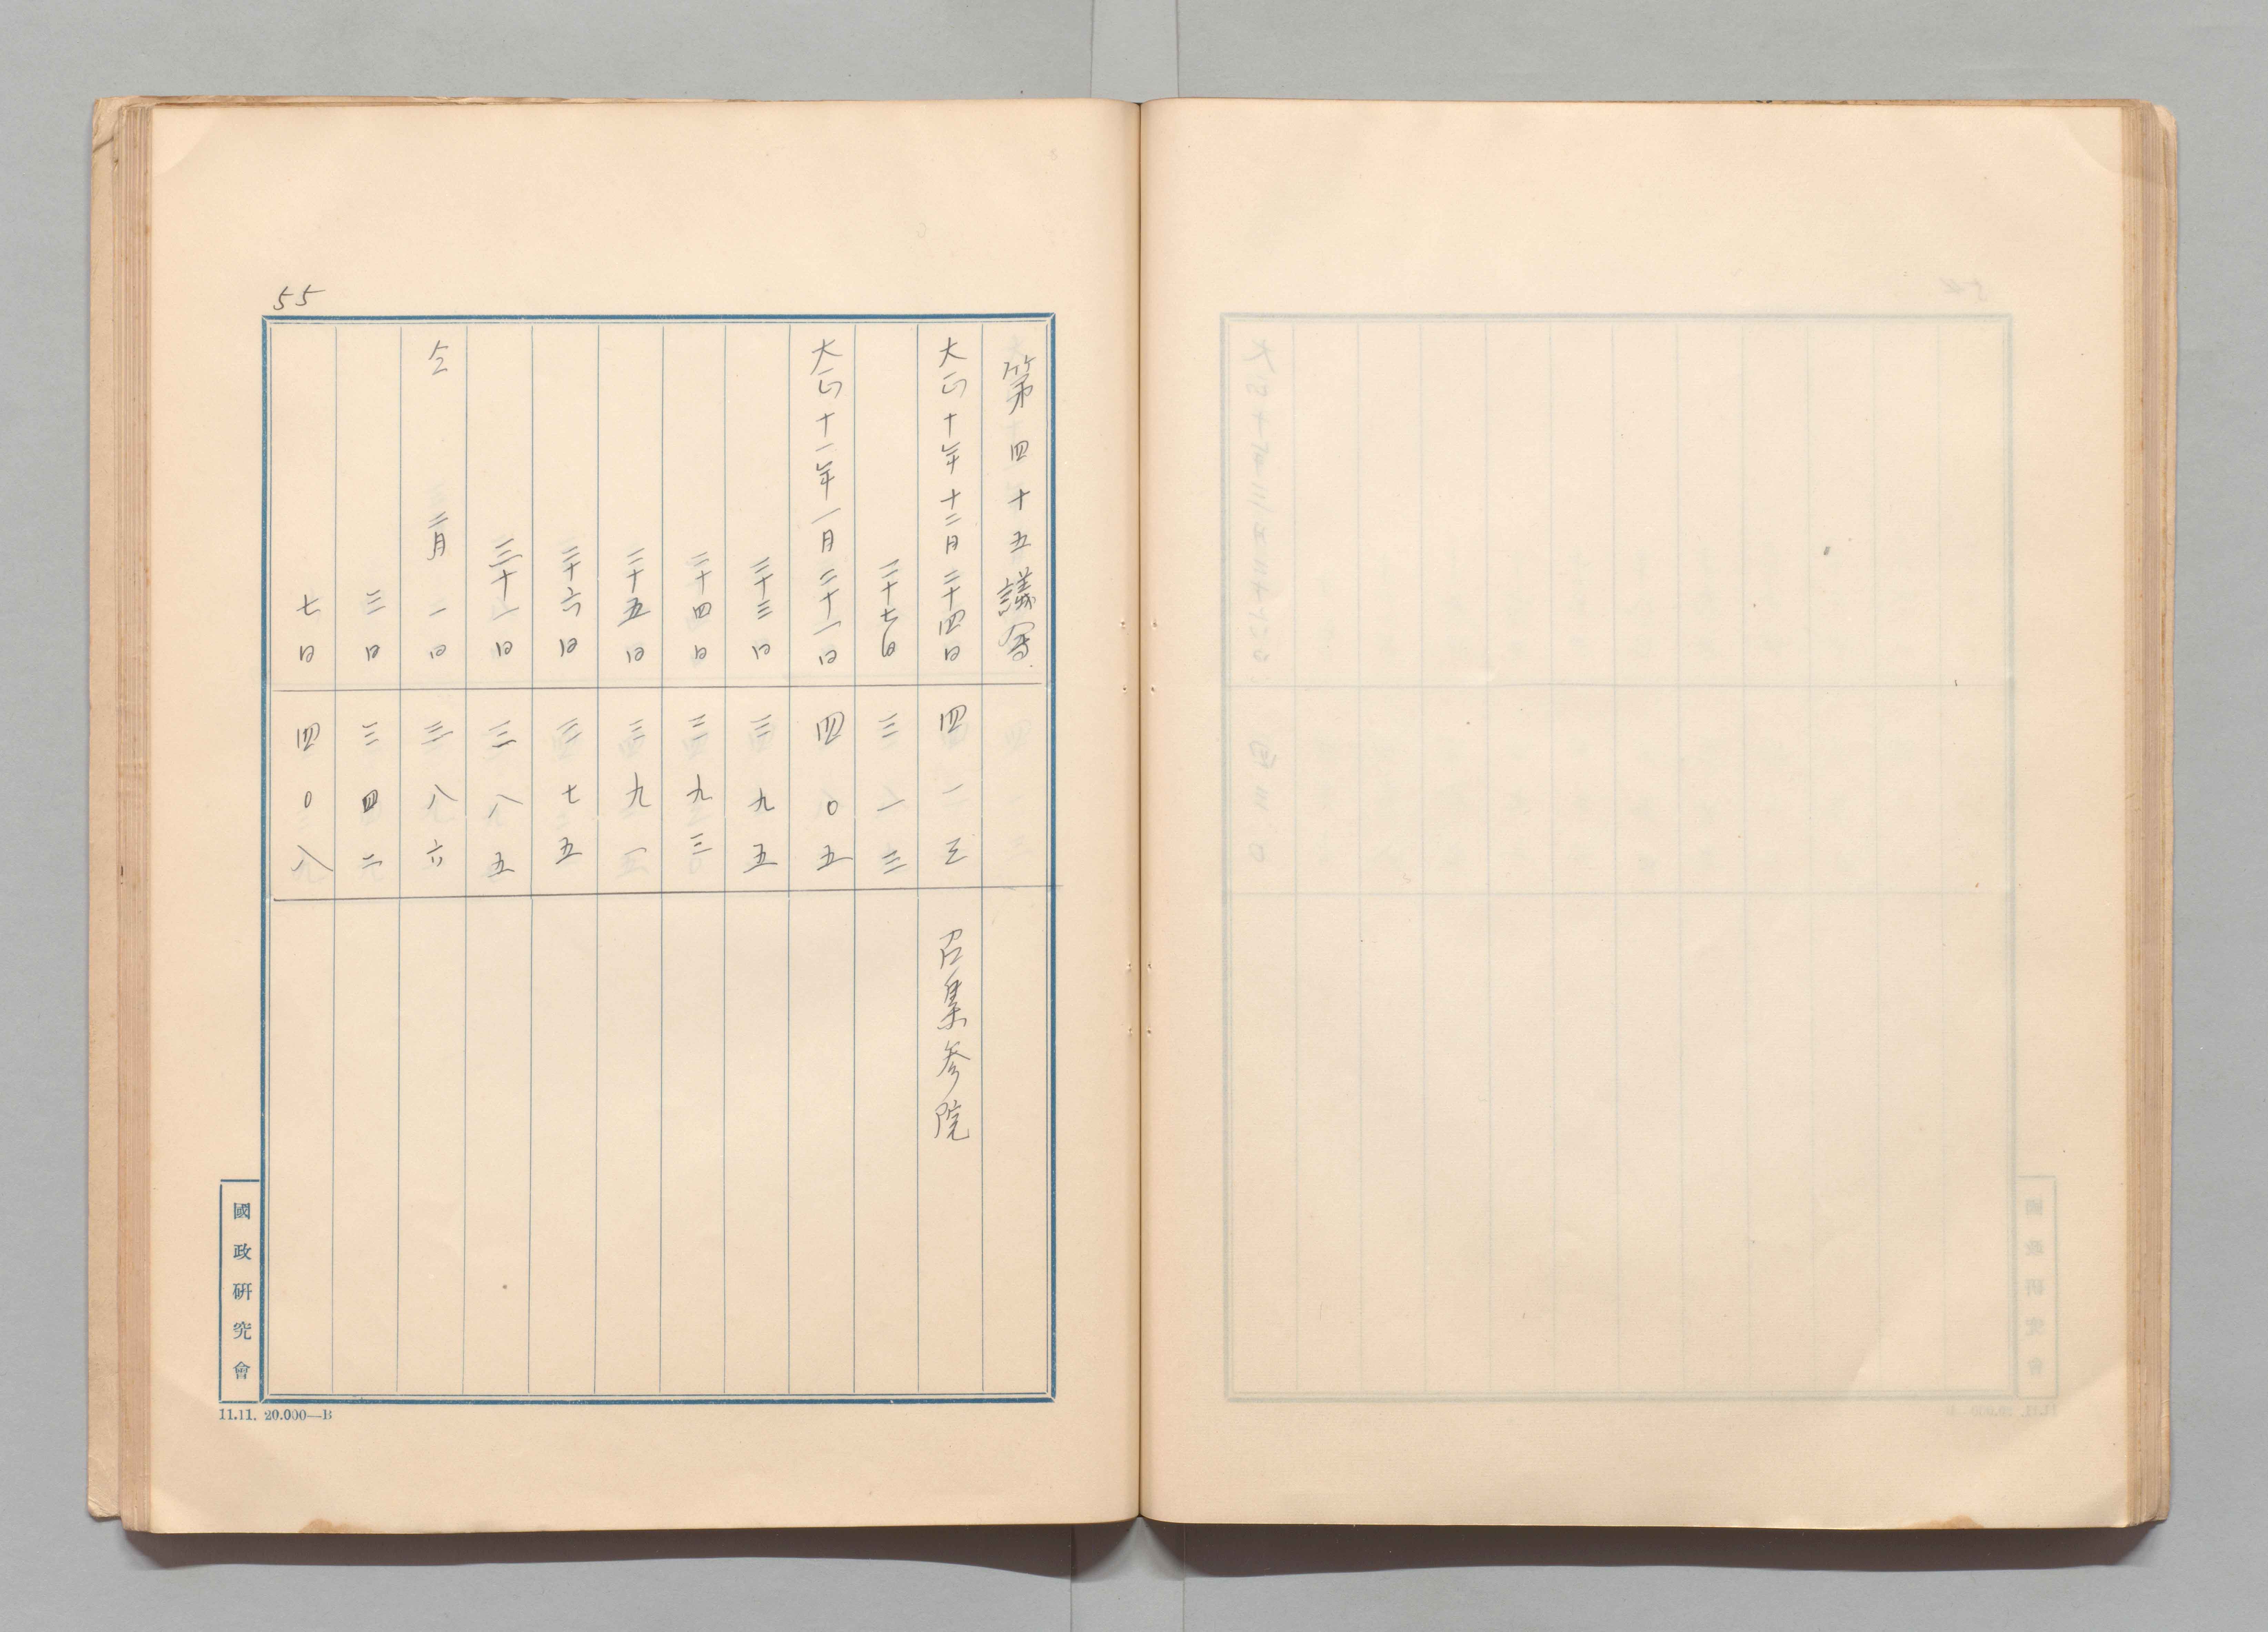 55
第四十五議會
大正十年十二月二十四日 四一三 召集参院
二十七日 三一三
大正十一年一月二十一日 四〇五
二十三日 三九五
二十四日 三九三
二十五日 三九一
二十六日 三七五
三十一日 三八五
仝 二月一日 三八六
三日 三四二
七日 四〇八
國政研究會
11.11. 20.000—B